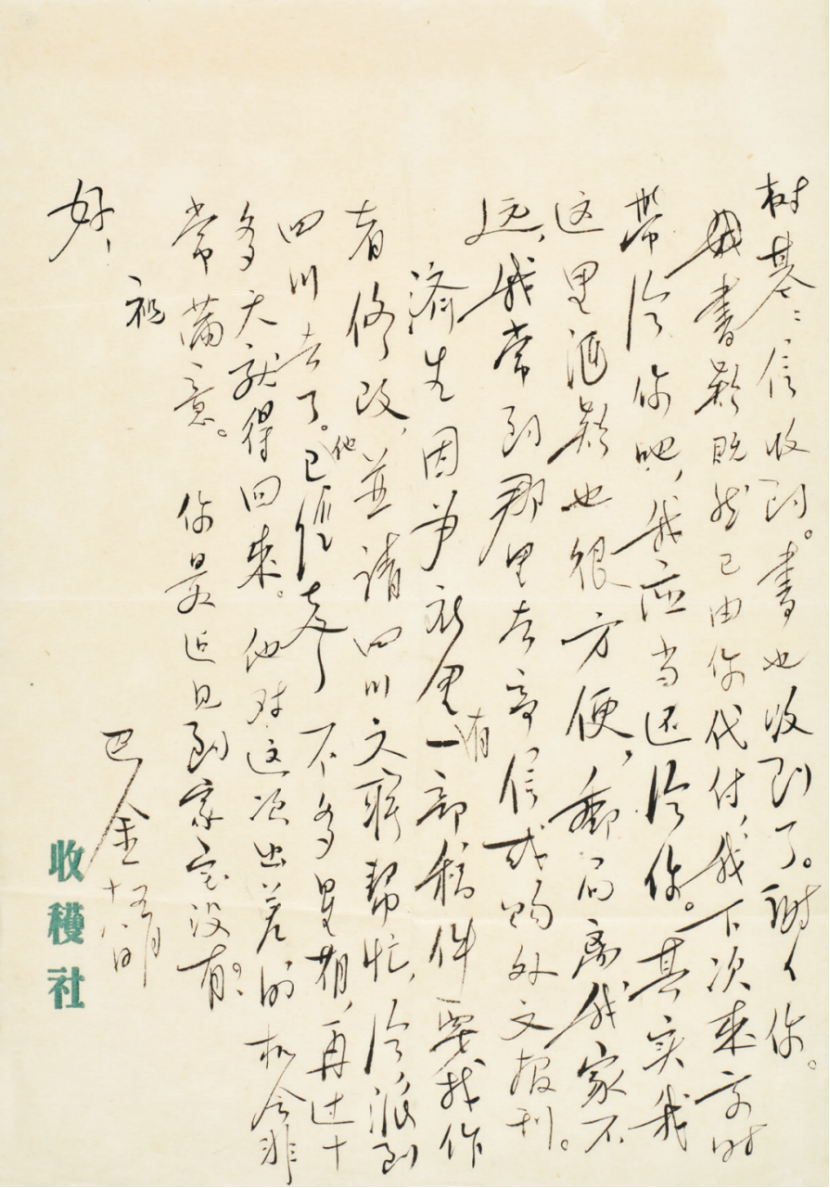 树基：信收到。书也收到了。谢谢你。
书款既然已由你代付，我下次来京时
带给你吧，我应当还给你。其实我
这里汇款也很方便，邮局离我家不
远，我常到那里去寄信或购外文报刊。
济生因为社里有一部稿件要找作
者修改，并请四川文联帮忙，给派到
四川去了。他已经去了不多星期，再过十
多天就得回来。他对这次出差的机会非
常满意。你最近见到家宝没有？
祝
好！
巴金
十八日
收穫社